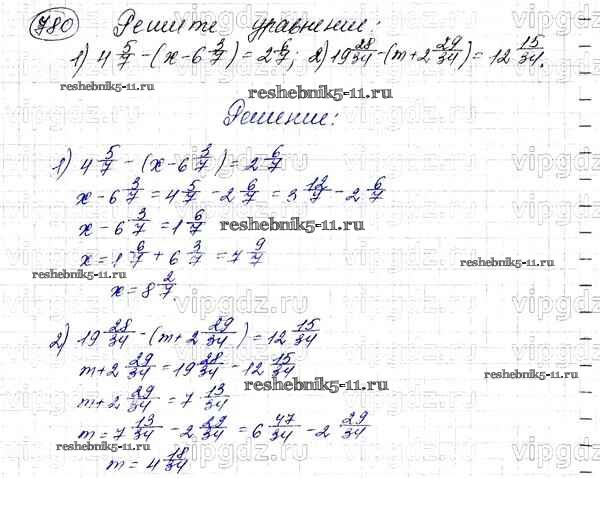 780 Решите уравнение:
1) 4 5/7 - (x - 6 3/7) = 2 6/7; 2) 19 28/34 - (m + 2 29/34) = 12 15/34.
reshebnik5-11.ru reshebnik5-11.ru
Решение:
1) 4 5/7 - (x - 6 3/7) = 2 6/7
x - 6 3/7 = 4 5/7 - 2 6/7 = 3 12/7 - 2 6/7
x - 6 3/7 = 1 6/7 reshebnik5-11.ru
x = 1 6/7 + 6 3/7 = 7 9/7
reshebnik5-11.ru reshebnik5-11.ru
x = 8 2/7.
2) 19 28/34 - (m + 2 29/34) = 12 15/34
m + 2 29/34 = 19 28/34 - 12 15/34
reshebnik5-11.ru reshebnik5-11.ru
m + 2 29/34 = 7 13/34
m = 7 13/34 - 2 29/34 = 6 47/34 - 2 29/34
reshebnik5-11.ru
m = 4 18/34
vipgdz.ru vipgdz.ru vipgdz.ru